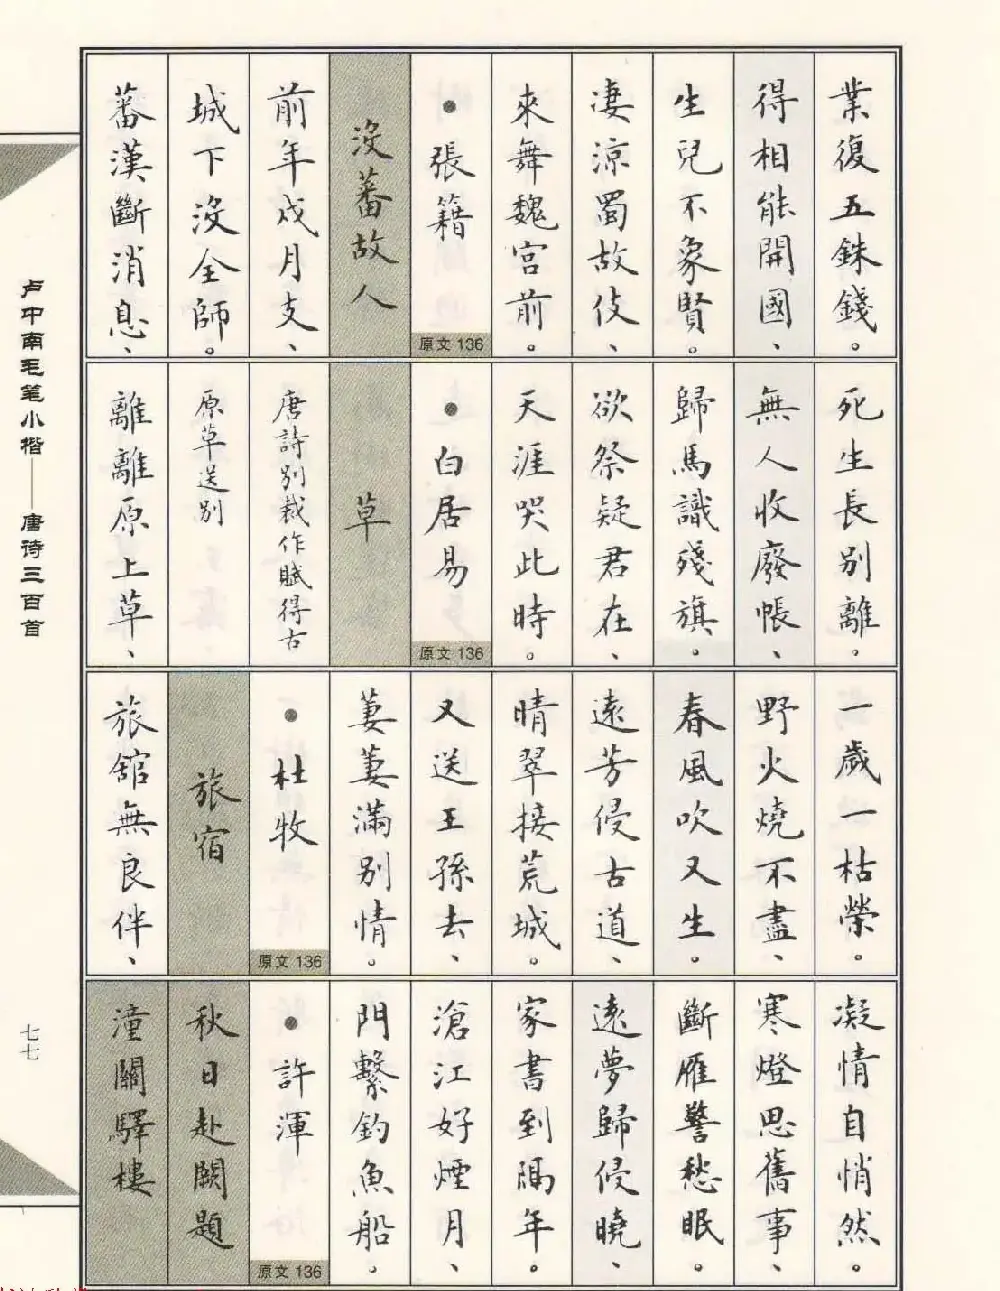 業復五銖錢。
得相能開國、
生兒不象賢。
凄涼蜀故伎、
來舞魏宮前。
●張籍
原文136
沒蕃故人
前年戍月支、
城下沒全師。
蕃漢斷消息、
死生長別離。
無人收廢帳、
歸馬識殘旗。
欲祭疑君在、
天涯哭此時。
●白居易
原文136
草
唐詩別裁作賦得古
原草送別
離離原上草、
一歲一枯榮。
野火燒不盡、
春風吹又生。
遠芳侵古道、
晴翠接荒城。
又送王孫去、
萋萋滿別情。
●杜牧
原文136
旅宿
旅舘無良伴、
凝情自悄然。
寒燈思舊事、
斷雁警愁眠。
遠夢歸侵曉、
家書到隔年。
滄江好煙月、
門繫釣魚船。
●許渾
原文136
秋日赴闕題
潼關驛樓
卢中南毛笔小楷——唐诗三百首
七七